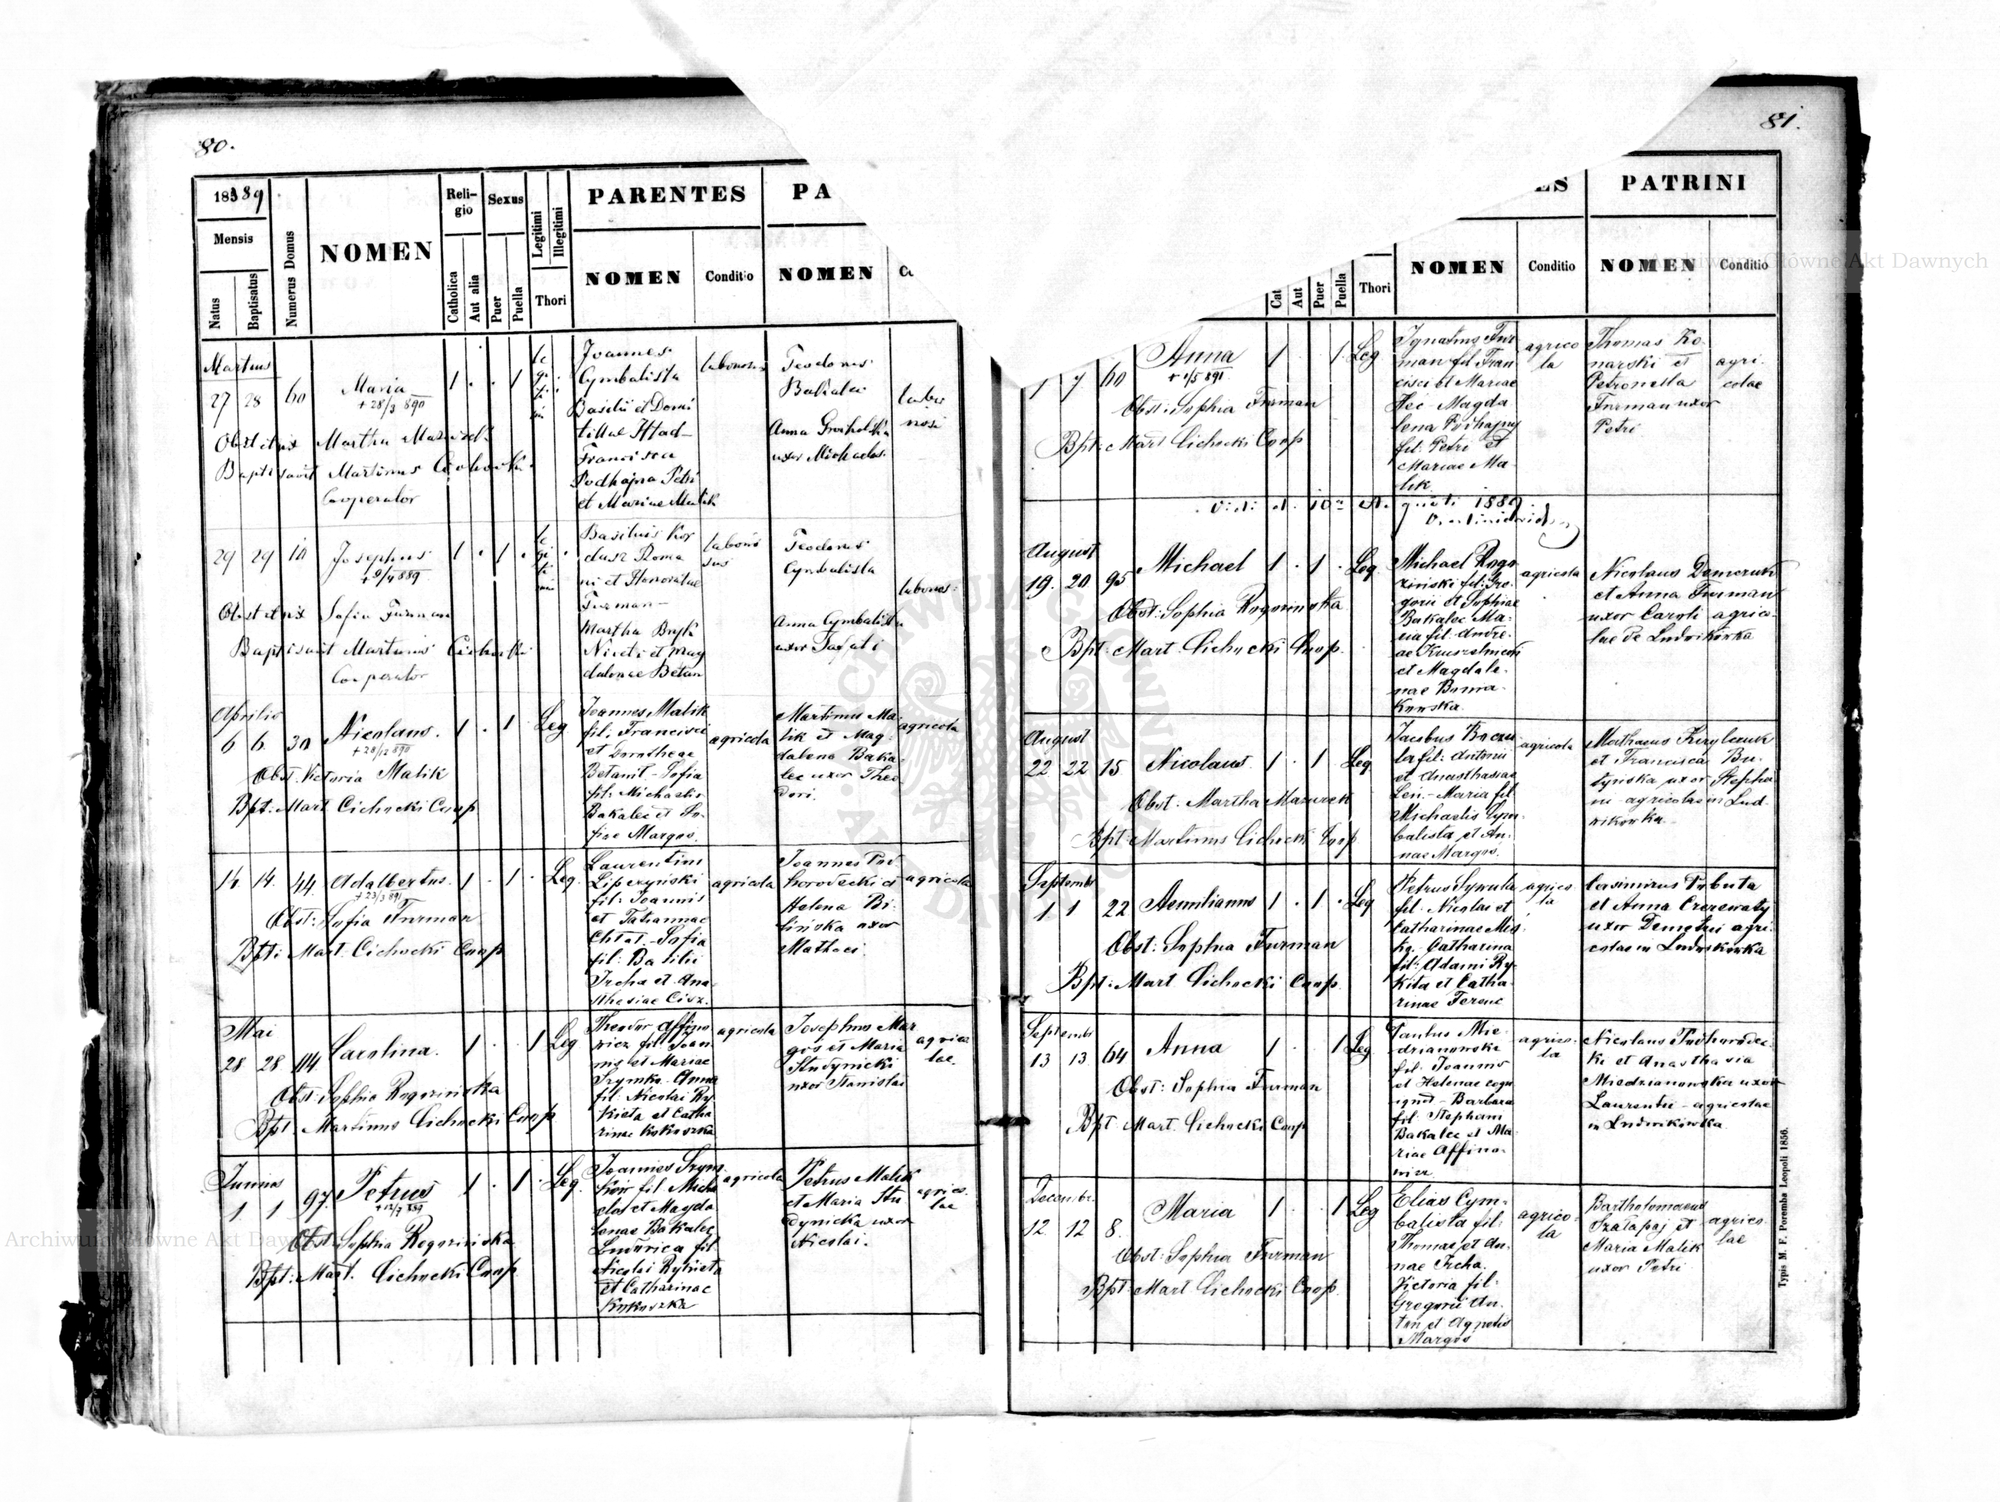 80.
1889
Mensis
Natus
Baptisatus
Numerus Domus
NOMEN
Religio
Catholica
Aut alia
Sexus
Puer
Puella
Legitimi
Illegitimi
Thori
PARENTES
NOMEN
Conditio
PA
NOMEN
Martius
27 28 60 Maria 1 . . 1
+ 28/3 890
Obstetrix Martha Mazurek
Baptisavit Martinus Cichocki
Cooperator
Joannes
Cymbalista
Basilii et Domi
tillae Htad-
Francisca
Podhajna Petri
et Mariae Malik
Teodorus
Bakalec
Anna
uxor Michaelis
29 29 10 Josephus 1 . 1 .
+ 9/4 889
Obstetrix Sofia Furman
Baptisavit Martinus Cichocki
Cooperator
Basilius Kor
dusz Roma
ni et Honoratae
Furman-
Martha
et Mag
dalenae Betan
Teodorus
Cymbalista
Anna Cymbalista
uxor
Aprilis
6 6 30 Nicolaus. 1 . 1 Leg
+ 28/12 890
Obst. Victoria Malik
Bpt: Mart Cichocki Coop
Joannes Malik
fil: Francisci
et Dorotheae
- Sofia
fil: Michaelis
Bakalec et So-
fiae Margos.
agricola
Martinus Ma-
lik et Mag-
dalena Baka-
lec uxor Theo
dori.
agricola
14 14. 44 Adalbertus. 1 . 1 . Leg.
+ 23/3 891
Obst: Sofia Furman
Bpt: Mart. Cichocki Coop
Laurentius
Lipczyński
fil: Joannis
et Tatiannae
- Sofia
fil: Basilii
Ircha et Ana-
sthesiae Cisz.
agricola
Joannes Pod
horodecki et
Helena Bi-
lińska uxor
Mathaei.
agricola
Mai
28 28 114 Carolina. 1 . 1 Leg
Obst: Sophia Rogozińska
Bpt: Martinus Cichocki Coop
Theodor Affino
wicz fil: Joan
nis et Mariae
Szymka. Anna
fil: Nicolai Ry
kieta et Catha
rinae Kokoszka
agricola
Josephus Mar
gos et Maria
Studynicki
uxor Stanislai
agrico
lae.
Junius
1. 1 97. Petrus 1 . 1 . Leg.
+ 12/7 889
Obst: Sophia Rogozińska
Bpt: Mart. Cichocki Coop.
Joannes Szym
ków fil Micha
elis et Magda
lenae Bakalec
Ludovica fil:
Nicolai Rykieta
et Catharinae
Kokoszka
agricola
Petrus Malik
et Maria Stu
dynicka uxor
Nicolai.
agrico-
lae
81.
ES
PATRINI
Cat
Aut
Puer
Puella
Thori
NOMEN
Conditio
NOMEN
Conditio
1 7 60 Anna 1 . . 1 Leg
+ 1/5 891
Obst: Sophia Furman
Bpt: Mart Cichocki Coop
Ignatius Fur
man fil Fran
cisci et Mariae
Magda
lena Podhajny
fil: Petri et
Mariae Ma-
lik.
agrico
la
Thomas Ko-
narski et
Petronella
Furman uxor
Petri
agri-
colae
1889.
August
19. 20 95 Michael 1 . 1 . Leg.
Obst: Sophia Rogozińska
Bpt: Mart. Cichocki Coop.
Michael Rogo
ziński fil: Gre-
gorii et Sophiae
Bakalec Ma-
ria fil: Andre-
ae
et Magdale-
nae
agricola
Nicolaus
et Anna Furman
uxor Caroli agrico-
lae de Ludwikówka
August
22 22 15 Nicolaus. 1 . 1 . Leg
Obst. Martha Mazurek
Bpt: Martinus Cichocki Coop
Jacobus
fil: Antonii
et Anasthasiae
- Maria fil
Michaelis Cym-
balista et An-
nae Margos.
agricola
Mathaeus
et Francisca Bu-
tyńska uxor Stepha
ni - agricolae in Lud
wikówka.
Septembr
1 1 22 Aemilianus 1 . 1 . Leg
Obst: Sophia Furman
Bpt: Mart Cichocki Coop.
Petrus Syrota
fil. Nicolai et
Catharinae
Catharina
fil: Adami Ry-
kita et Catha-
rinae Ferenc
agrico-
la
Casimirus
et Anna
uxor Demetrii agri-
colae in Ludwikówka
Septembr
13 13. 64 Anna 1 . 1 Leg
Obst: Sophia Furman
Bpt: Mart. Cichocki Coop
Paulus Mie-
dzianowski
fil: Joannis
et Helenae
Barbara
fil: Stephani
Bakalec et Ma-
riae Affino-
wicz
agrico-
la
Nicolaus Podhorodec-
ki et Anasthasia
Miedzianowska uxor
Laurentii - agricolae
in Ludwikówka.
Decembr.
12. 12 8. Maria 1 . 1 Leg
Obst: Sophia Furman
Bpt: Mart Cichocki Coop.
Elias Cym-
balista fil:
Thomas et An-
nae Ircha.
Victoria fil:
Gregorii
et Agnetis
Margos
agrico-
la
Bartholomaeus
et
Maria Malik
uxor Petri
agrico-
lae
Typis M. F. Poremba Leopoli 1856.
Archiwum Główne Akt Dawnych
Archiwum Główne Akt Dawnych
ARCHIWUM GŁÓWNE
AKT DAWNYCH